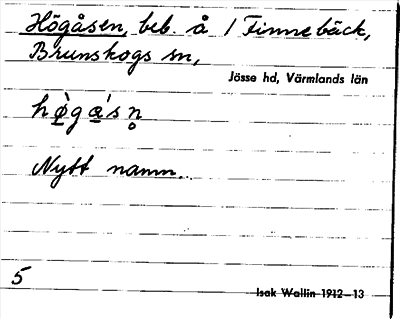 Högåsen, beb. å 1 Finnebäck,
Brunskogs sn,
Jösse hd, Värmlands län
hø̀gásn̥
Nytt namn.
5
Isak Wallin 1912–13